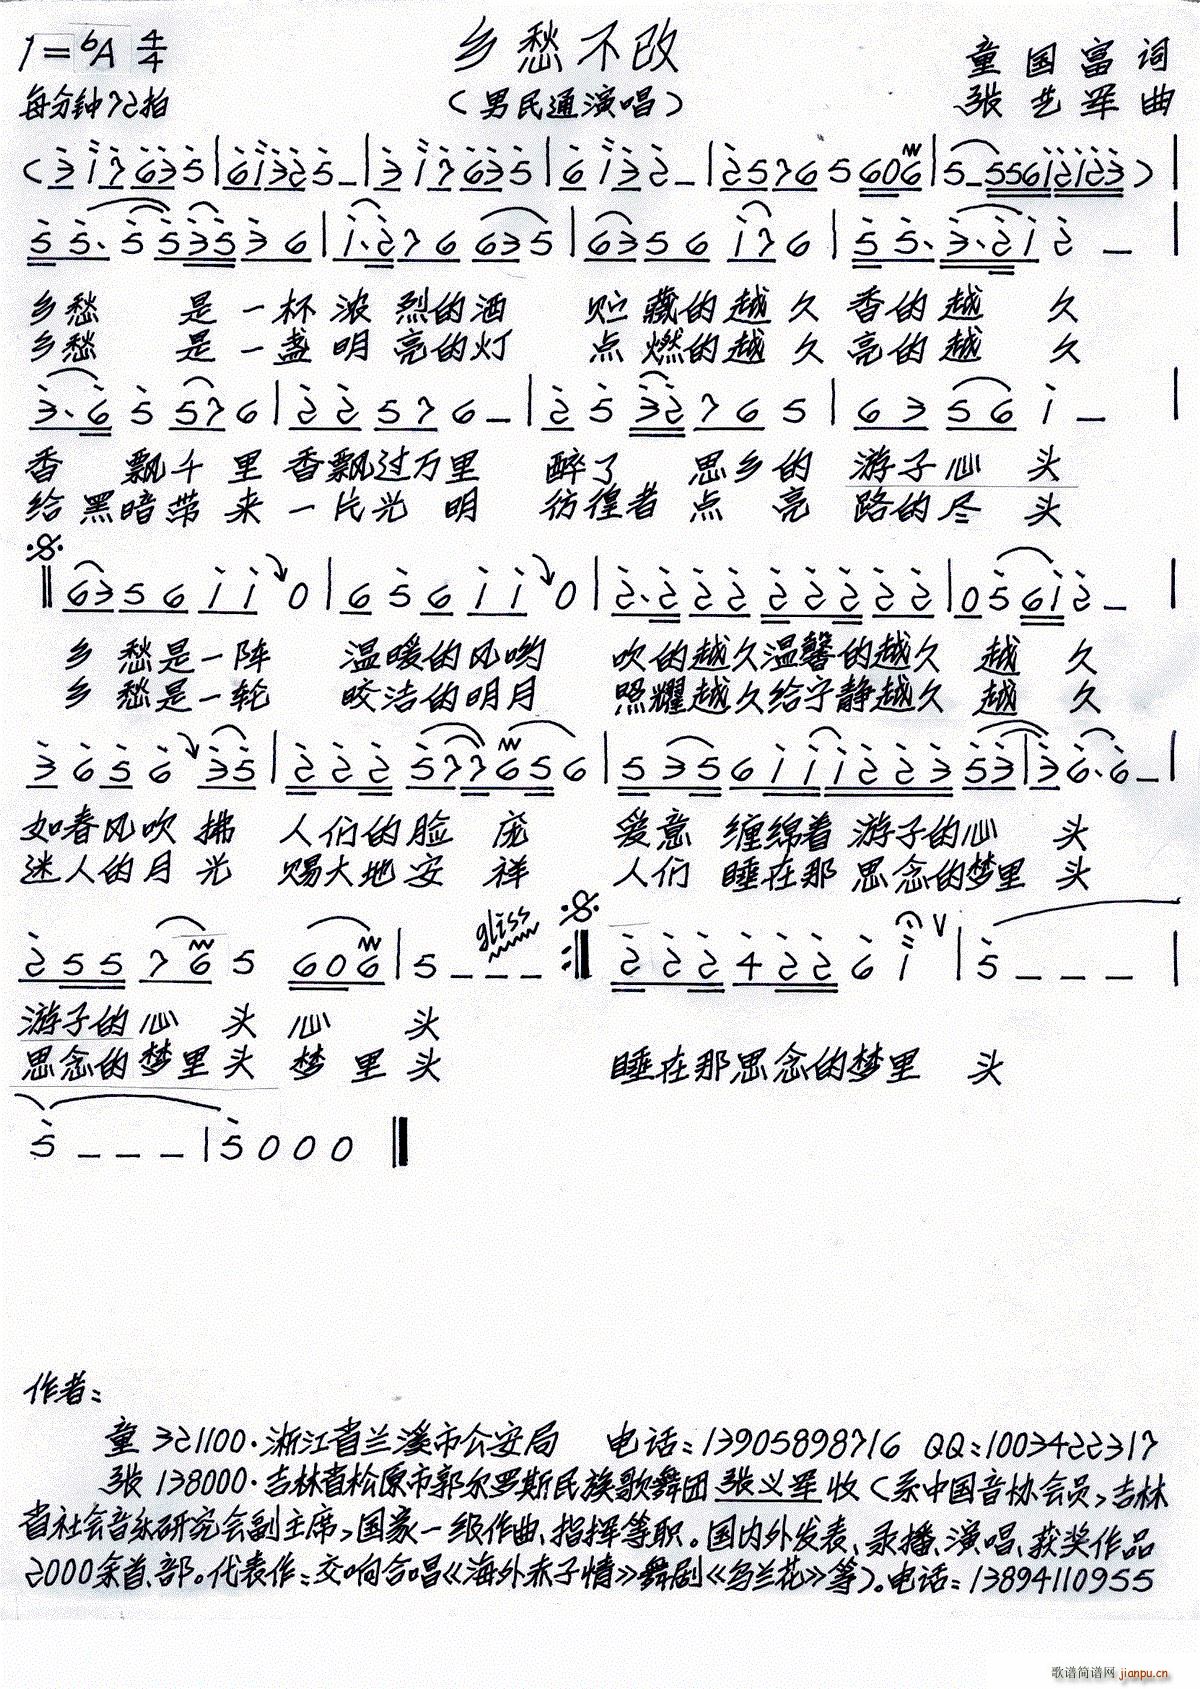 1=bA 4/4
乡愁不改
童国富 词
每分钟72拍
(男民通演唱)
张艺军 曲
(3 i 7 6 3 5 | 6 i 3 2 5 – | 3 i 7 6 3 5 | 6 i 3 2 – | 2 5 7 6 5 6 0 6 | 5 – 5 5 6 i 2 i 2 3 ) |
5 5 · 5 5 3 5 3 6 | i · 2 7 6 6 3 5 | 6 3 5 6 i 7 6 | 5 5 · 3 · 2 i 2 – |
乡愁 是一杯浓烈的酒 贮藏的越久香的越久
乡愁 是一盏明亮的灯 点燃的越久亮的越久
3 · 6 5 5 7 6 | 2 2 5 7 6 – | 2 5 3 2 7 6 5 | 6 3 5 6 i – |
香飘千里香飘过万里 醉了思乡的游子心头
给黑暗带来一片光明 彷徨者点亮路的尽头
6 3 5 6 i i 0 | 6 5 6 i i 0 | 2 · 2 2 2 2 2 2 2 2 | 0 5 6 i 2 – |
乡愁是一阵 温暖的风哟 吹的越久温馨的越久越久
乡愁是一轮 皎洁的明月 照耀越久给宁静越久越久
3 6 5 6 3 5 | 2 2 2 5 7 7 6 5 6 | 5 3 5 6 i i i 2 2 3 5 3 | 3 6 · 6 – |
如春风吹拂 人们的脸庞 爱意缠绵着游子的心头
迷人的月光 赐大地安祥 人们睡在那思念的梦里头
2 5 5 7 6 5 6 0 6 | 5 – – – gliss :‖ 2 2 2 4 2 2 6 i V | 5 – – – |
游子的心头心头
思念的梦里头梦里头 睡在那思念的梦里头
5 – – – | 5 0 0 0 ‖
作者:
童 321100·浙江省兰溪市公安局 电话:13905898716 QQ:1003422317
张 138000·吉林省松原市郭尔罗斯民族歌舞团 张义军 收(系中国音协会员,吉林
省社会音乐研究会副主席,国家一级作曲、指挥等职。国内外发表、录播、演唱、获奖作品
2000余首、部。代表作:交响合唱《海外赤子情》舞剧《乌兰花》等)。电话:13894110955
歌谱简谱网 jianpu.cn